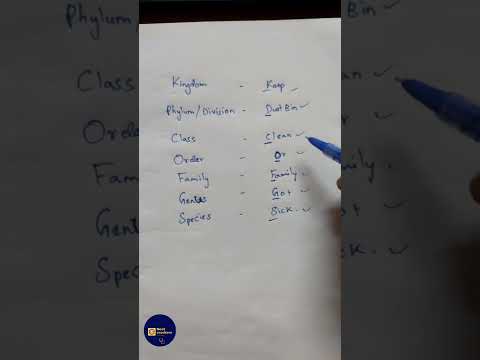 Kingdom - Keep
Phylum/Division - DustBin ✓
Class - Clean ✓
Order - Or ✓
Family - Family.
Genus - Got ✓
Species - Sick. ✓